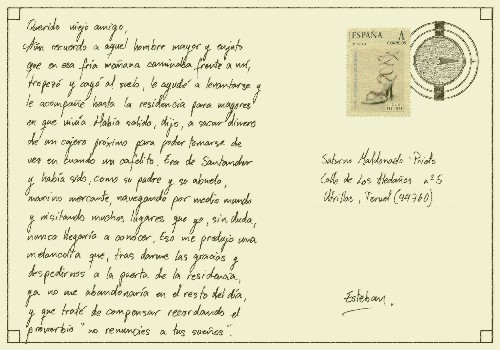 Querido viejo amigo.
Aún recuerdo a aquel hombre mayor y enjuto
que en esa fría mañana caminaba frente a mí,
tropezó y cayó al suelo, le ayudé a levantarse y
le acompañé hasta la residencia para mayores
en que vivía. Había salido, dijo, a sacar dinero
de un cajero próximo para poder tomarse de
vez en cuando un cafelito. Era de Santander
y había sido, como su padre y su abuelo,
marino mercante, navegando por medio mundo
y visitando muchos lugares que yo, sin duda,
nunca llegaría a conocer. Eso me produjo una
melancolía que, tras darme las gracias y
despedirnos a la puerta de la residencia,
ya no me abandonaría en el resto del día,
y que traté de compensar recordando el
proverbio "no renuncies a tus sueños".
ESPAÑA A
CORREOS
Saturno Maldonado Prieto
Calle de Los Hedaños nº 5
Utrillas, Teruel (44760)
Esteban.